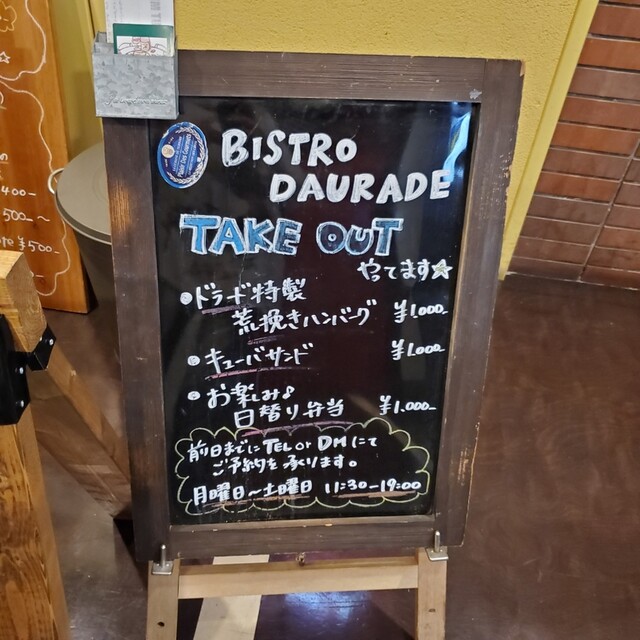 BISTRO
DAURADE
TAKE OUT
やってます☆
・ドラード特製
荒挽きハンバーグ ¥1.000-
・キューバサンド ¥1.000
・お楽しみ♪
日替り弁当 ¥1.000-
前日までにTEL or DMにて
ご予約を承ります。
月曜日～土曜日 11:30-19:00
400-
500-～
¥500-